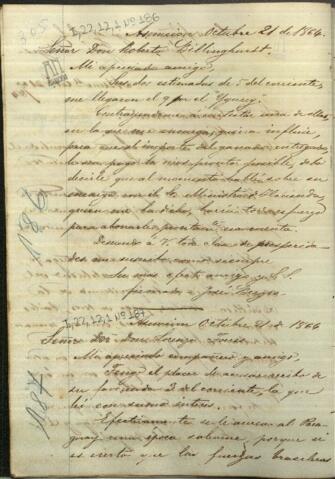 I,22,12,1 Nº 186
Asuncion Octubre 21 de 1864.
Señor Don Roberto Billinghurst.
Mi apreciado amigo,
Sus dos estimadas de 5 del corriente,
me llegaron el 9 por el
Contrayendome a contestar una de ellas,
en la que me encarga, quiera influir,
para que el importe del ganado entregado,
le sea pago lo mas pronto posible, debo
decirle que al momento hablé sobre su
encargo con el Sr Ministro de Hacienda,
quien me ha dicho, haria todo esfuerzo
para abonarle prontamente su cuenta.
Deseando a V. toda clase de prosperida-
des me suscribo como siempre
Su mas afecto amigo y S. S.
firmado José Berges
186
I,22,12,1 Nº 187
Asuncion Octubre 21 de 1864
Señor Dor Don Lorenzo Torres
Mi apreciado compatriota y amigo.
Tengo el placer de acusar recibo de
su fecha 3 del corriente, la que
leí con sumo interes.
Efectivamente se le acerca al Para-
guay una época solemne, porque si
es cierto que las fuerzas brasileras
187